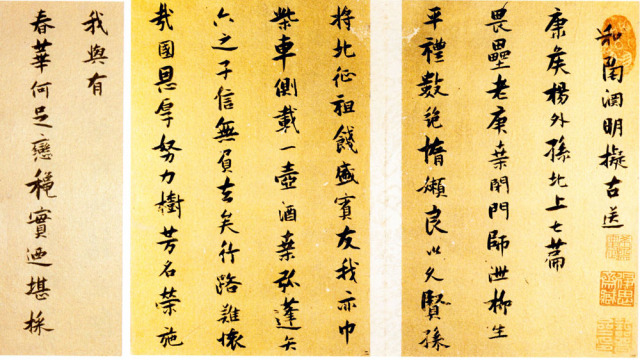 和陶淵明擬古送
康侯楊外孫北上七篇
畏壘老庚桑閉門師泄柳生
平禮數絶惰嬾良以久賢孫
將北征祖餞盛賓友我亦巾
柴車側載一壺酒桑弧蓬矢
六之子信無負去矣行路難懷
哉國恩厚努力樹芳名榮施
我與有
春華何足戀穐實迺堪採